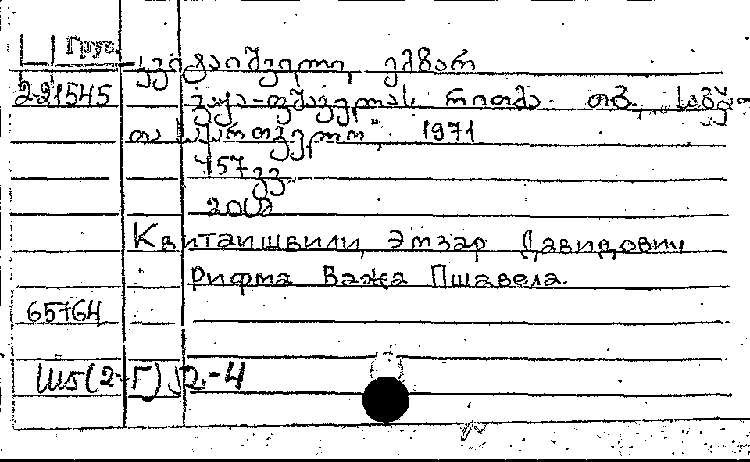 Груз.
კვიტაიშვილი, ემზარ
2-21545 ვაჟა-ფშაველას რითმა. თბ., "საბჭო-
თა საქართველო", 1971
157 გვ.
200ც
Квиташвили, Эмзар Давидович
Рифма Важа Пшавела.
65764
Ш5(2-Г)Я2-4